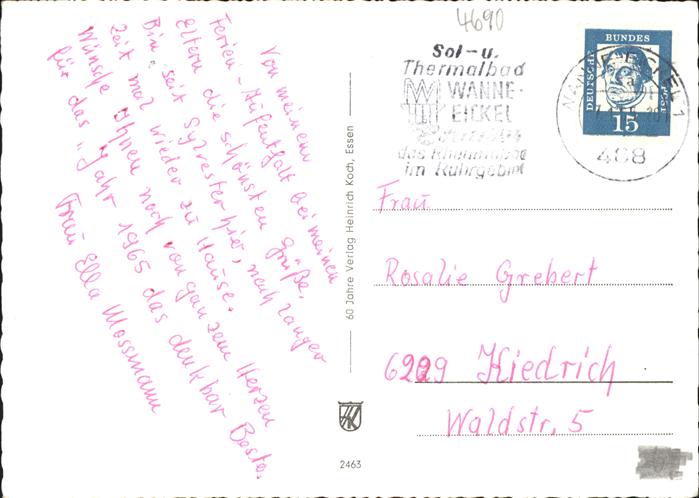 4690
Sol-u.
Thermalbad
WANNE-
EICKEL
das Rheumabad
im Ruhrgebiet
DEUTSCHE
BUNDES
POST
15
WANNE-EICKEL 1
468
Von meinem
Ferien-Aufenthalt bei meinen
Eltern die schönsten Grüße.
Bin seit Sylvester hier, nach langer
Zeit mal wieder zu Hause.
Wünsche Ihnen noch von ganzem Herzen
für das Jahr 1965 das denkbar Beste.
Frau Ella Mossmann
60 Jahre Verlag Heinrich Koch, Essen
2463
Frau
Rosalie Grebert
6229 Kiedrich
Waldstr. 5